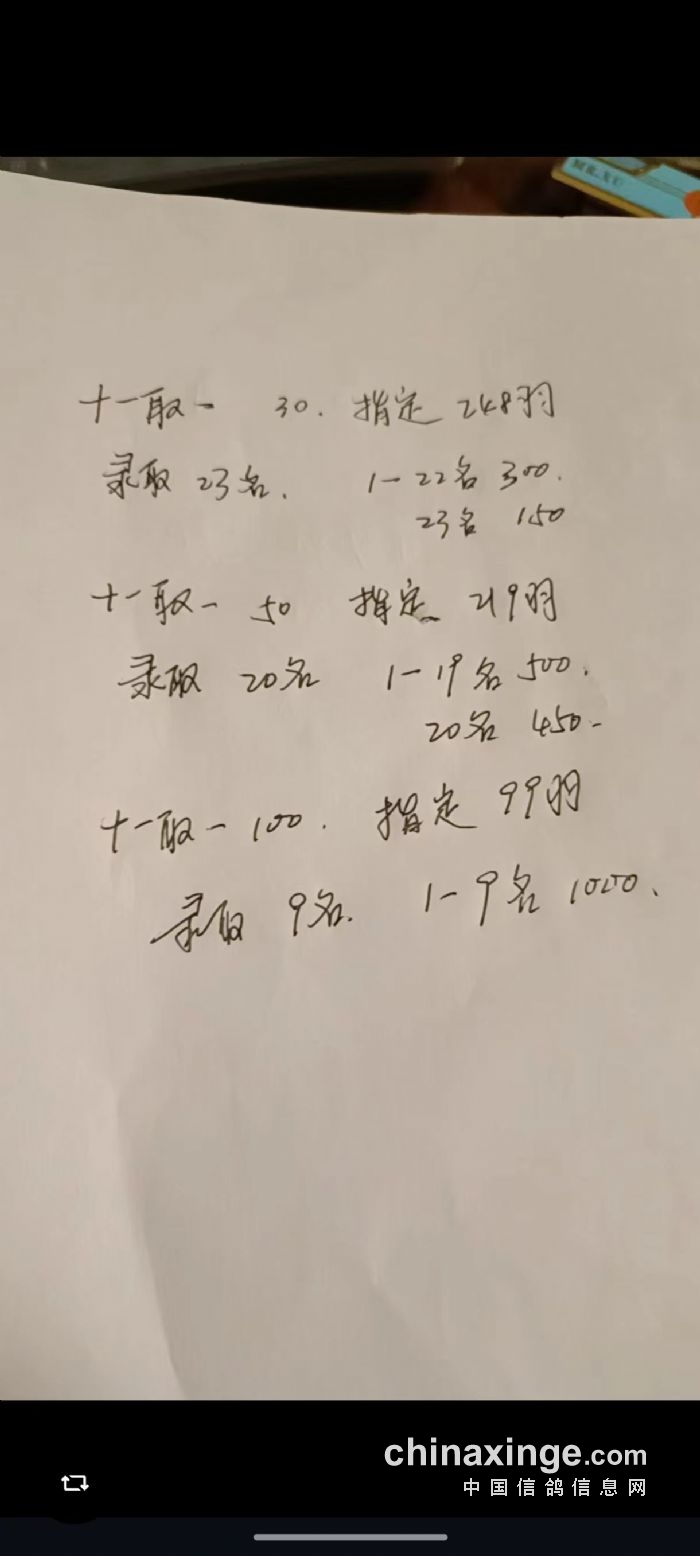 MR.XU
十一取一 30. 指定 248羽
录取 23名. 1-22名 300.
23名 150
十一取一 50 指定 219羽
录取 20名 1-19名 500.
20名 450-
十一取一 100. 指定 99羽
录取 9名. 1-9名 1000.
chinaxinge.com
中国信鸽信息网